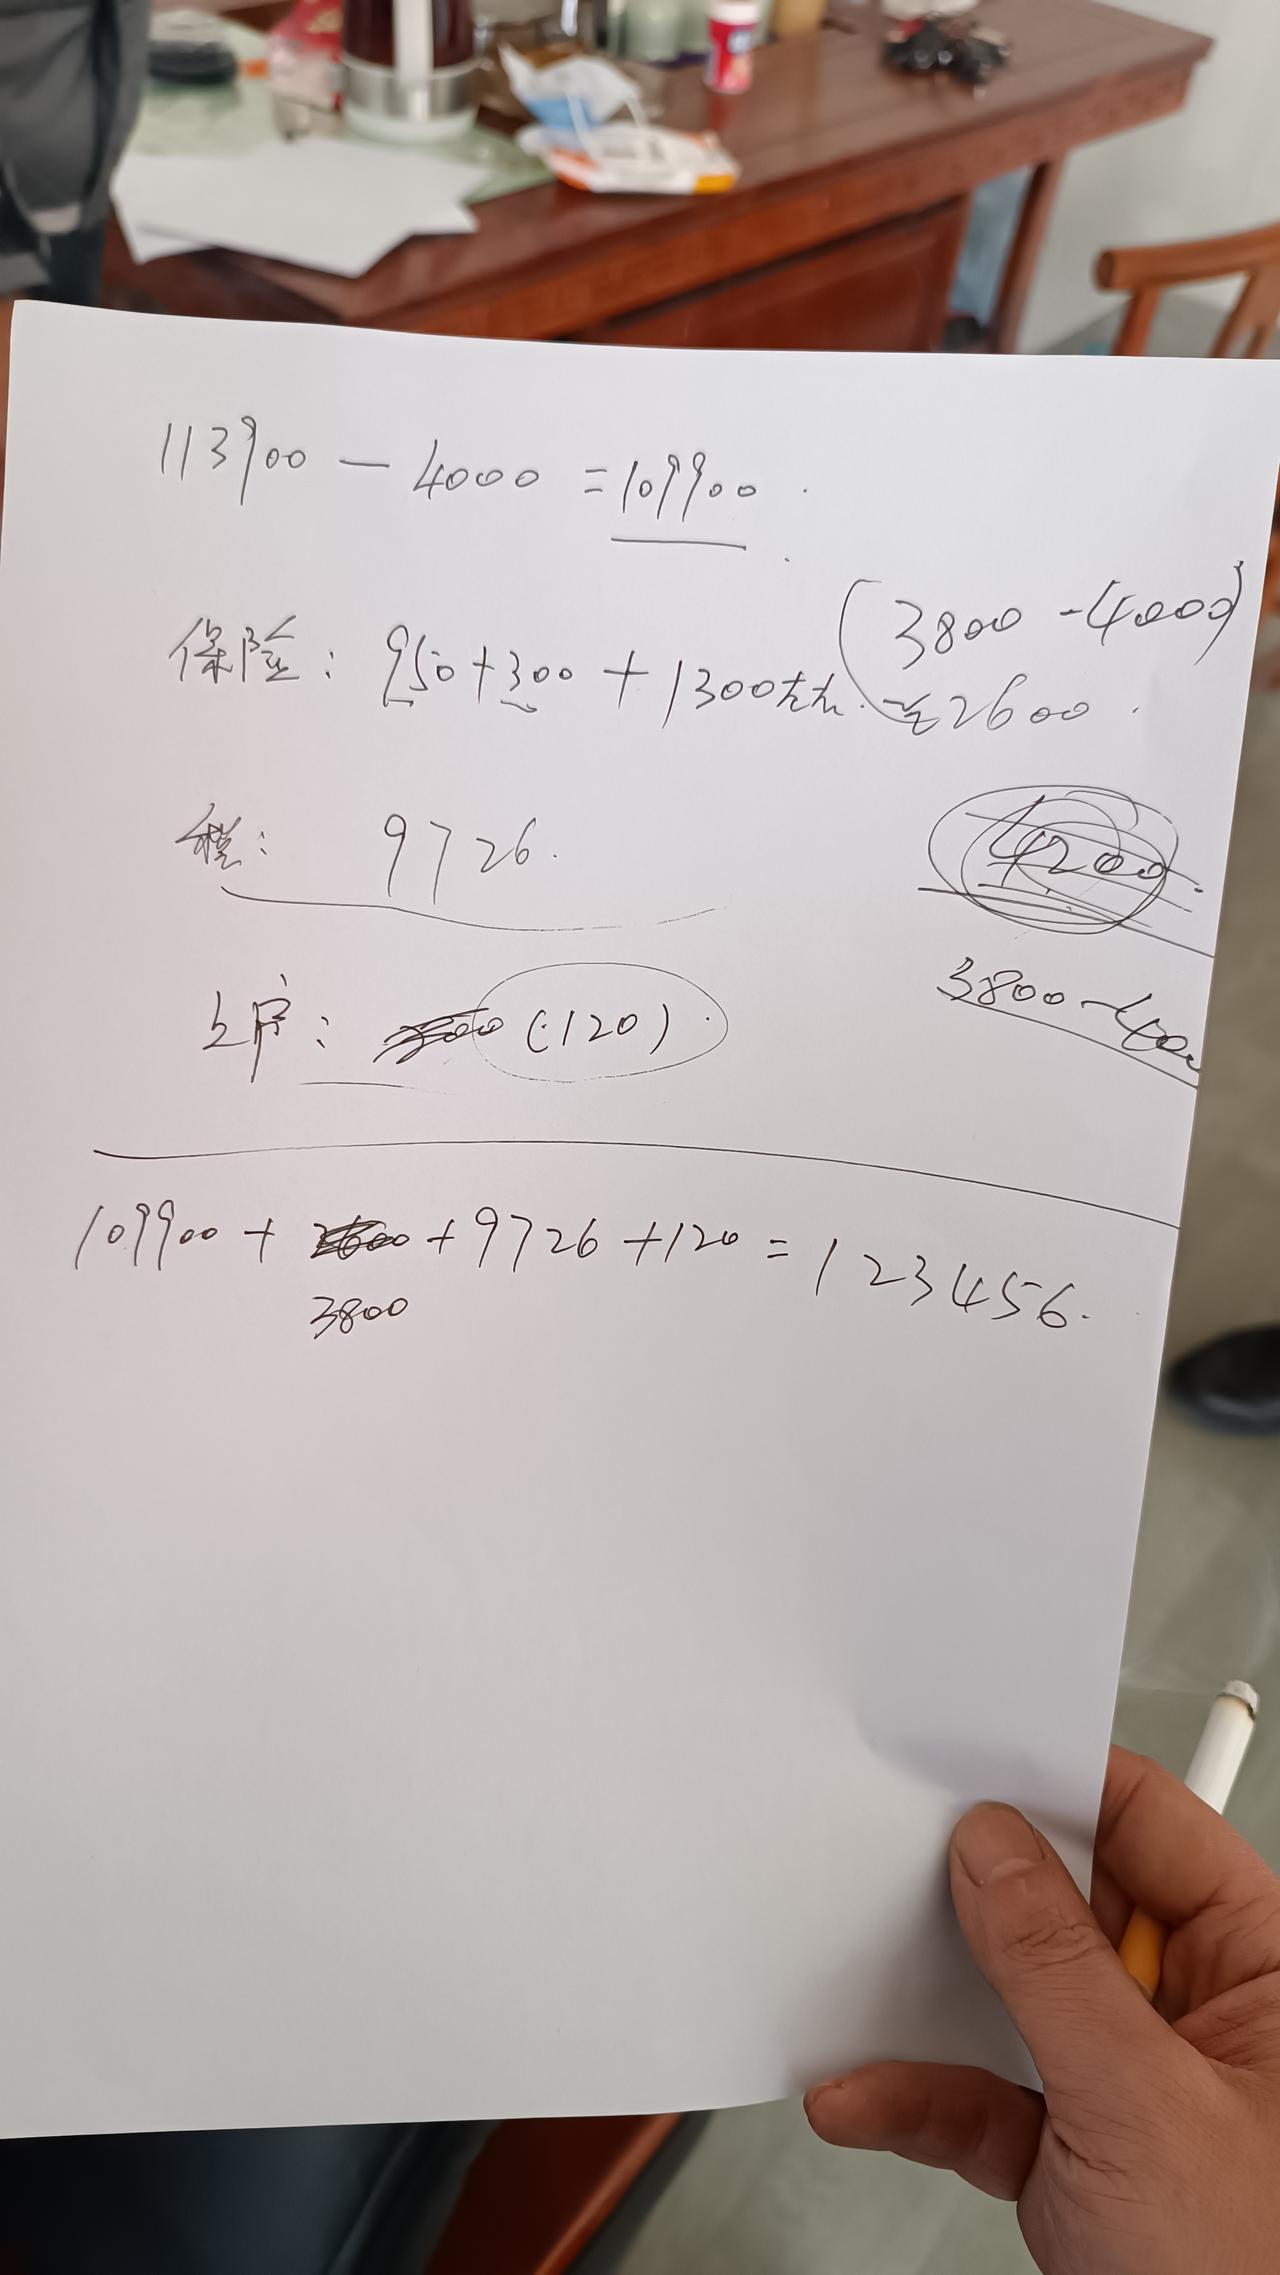 113900 - 4000 = 109900
(3800 - 4000)
保险: 950 + 300 + 1300左右. ≈ 2600
税: 9726.
4200
3800 - 4000
上户: (120)
109900 + 2600 + 9726 + 120 = 123456.
3800